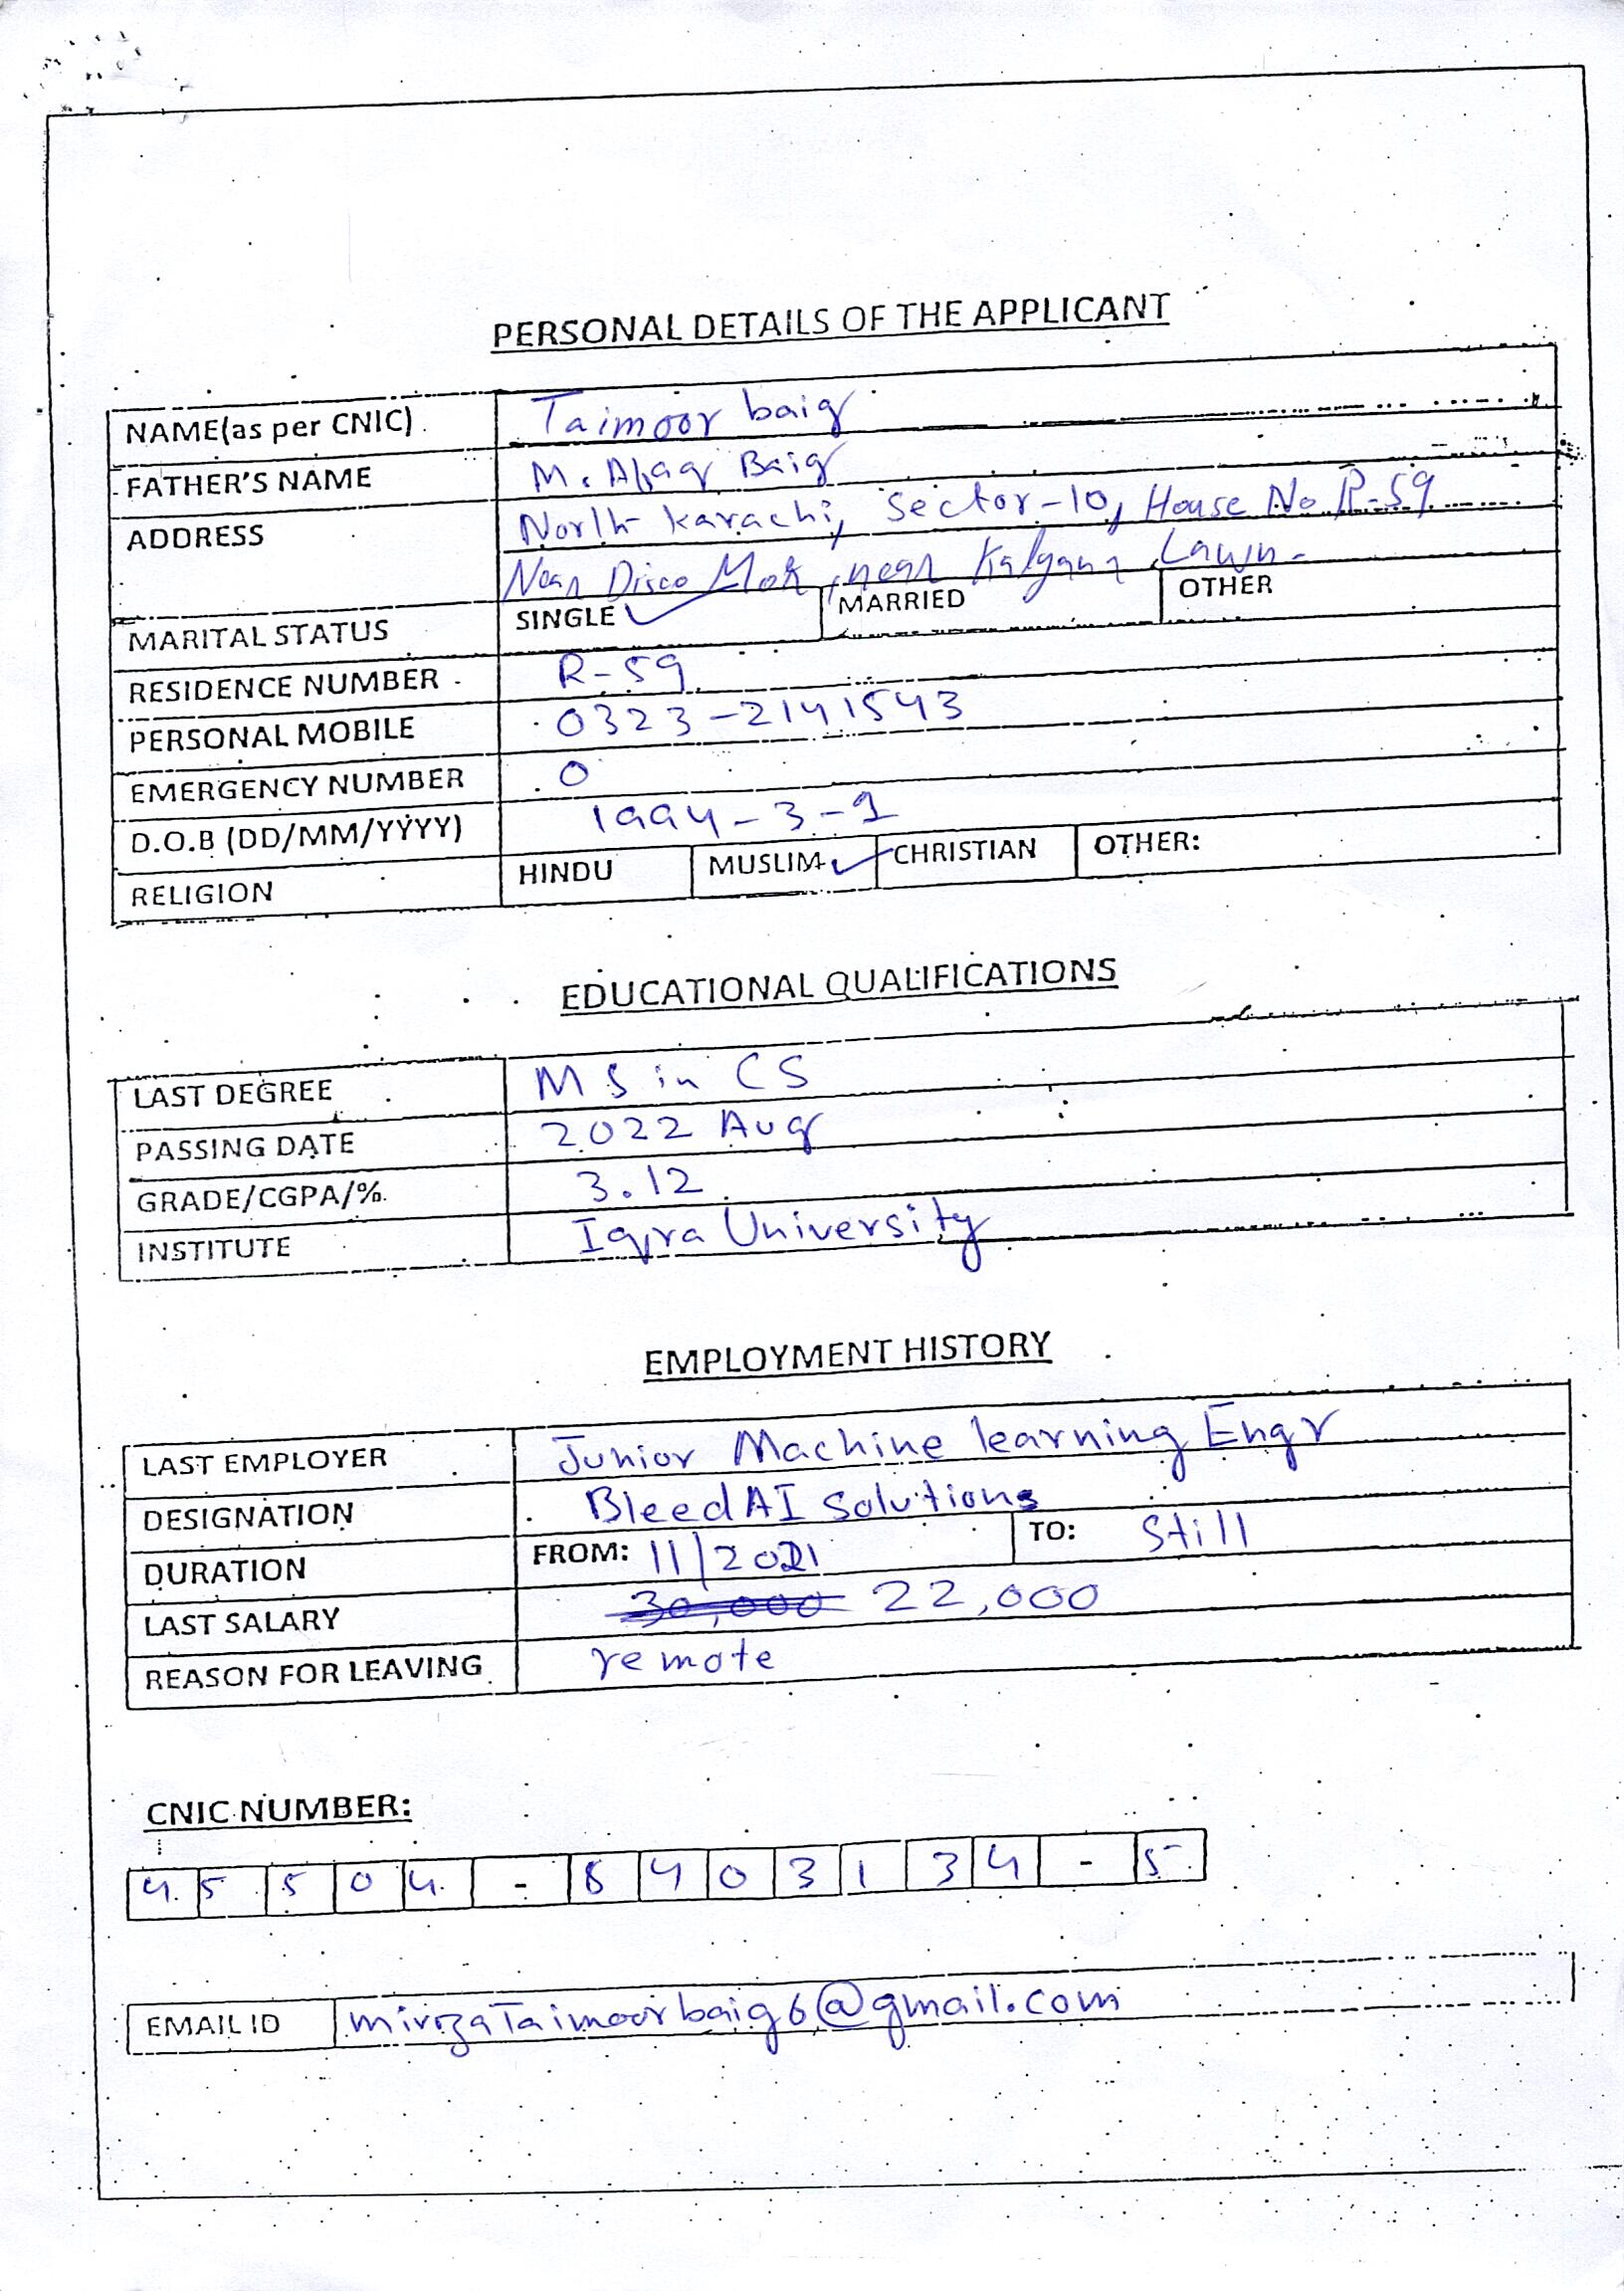 PERSONAL DETAILS OF THE APPLICANT
NAME(as per CNIC) Taimoor baig
FATHER'S NAME M. Afaq Baig
ADDRESS North karachi, Sector-10, House No R-59
Near Disco Mor, near Kalyana Lawn.
MARITAL STATUS SINGLE ✓ MARRIED OTHER
RESIDENCE NUMBER R-59
PERSONAL MOBILE 0323-2141543
EMERGENCY NUMBER 0
D.O.B (DD/MM/YYYY) 1994-3-1
RELIGION HINDU MUSLIM ✓ CHRISTIAN OTHER:
EDUCATIONAL QUALIFICATIONS
LAST DEGREE MS in CS
PASSING DATE 2022 Aug
GRADE/CGPA/% 3.12
INSTITUTE Iqra University
EMPLOYMENT HISTORY
LAST EMPLOYER Junior Machine learning Engr
DESIGNATION BleedAI Solutions
DURATION FROM: 11/2021 TO: Still
LAST SALARY 30,000 22,000
REASON FOR LEAVING remote
CNIC NUMBER:
45504-8403134-5
EMAIL ID mirzaTaimoorbaig6@gmail.com